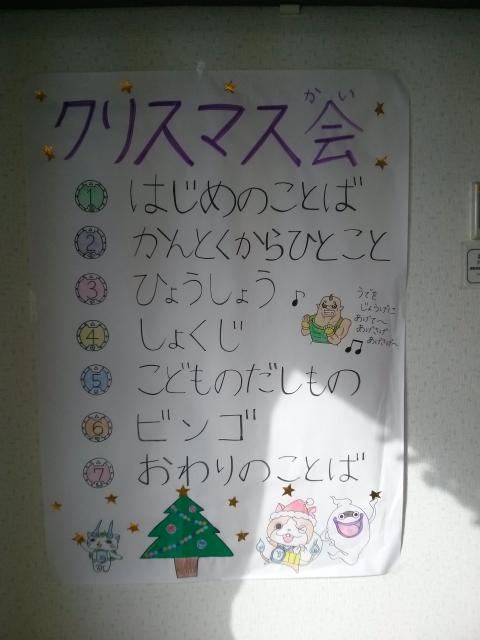 クリスマス会
かい
1 はじめのことば
2 かんとくからひとこと
3 ひょうしょう♪
4 しょくじ
5 こどものだしもの
6 ビンゴ
7 おわりのことば
うでを
じょうげに
あげて〜
あげさげ
あげさげ〜